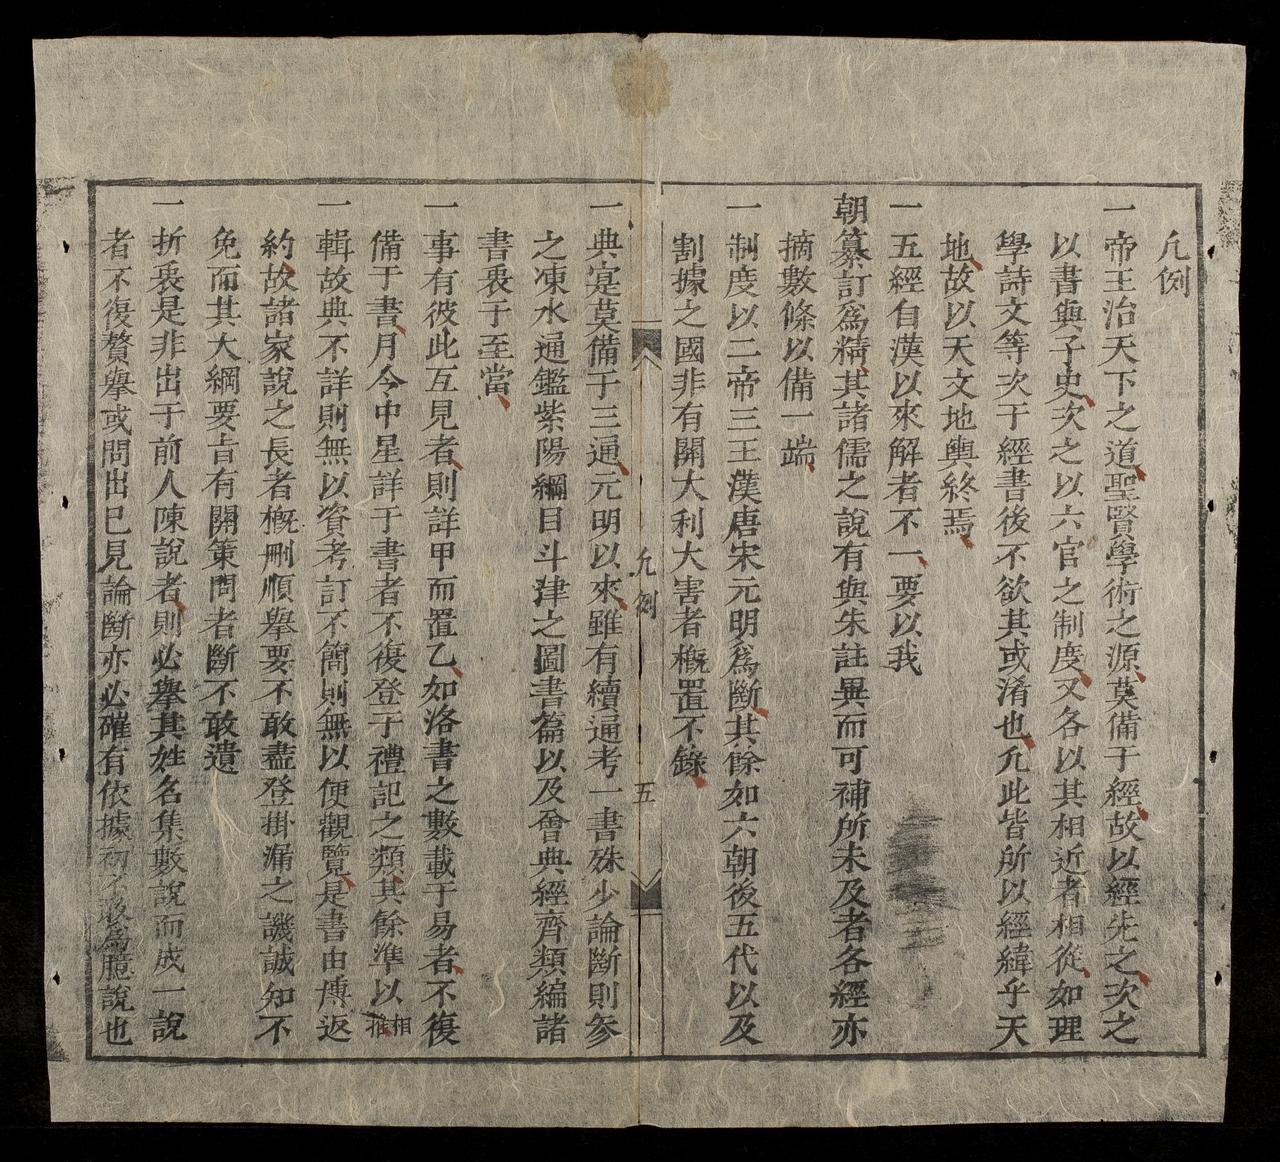 凡例
一帝王治天下之道聖賢學術之源莫備于經故以經先之次之
以書與子史次之以六官之制度又各以其相近者相從如理
學詩文等次于經書後不欲其或淆也凡此皆所以經緯乎天
地故以天文地輿終焉
一五經自漢以來解者不一要以我
朝纂訂爲精其諸儒之說有與朱註異而可補所未及者各經亦
摘數條以備一端
一制度以二帝三王漢唐宋元明爲斷其餘如六朝後五代以及
割據之國非有關大利大害者槪置不錄
凡例
五
一典寔莫備于三通元明以來雖有續通考一書殊少論斷則參
之凍水通鑑紫陽綱目斗津之圖書篇以及會典經齊類編諸
書裒于至當
一事有彼此互見者則詳甲而置乙如洛書之數載于易者不復
備于書月令中星詳于書者不復登于禮記之類其餘準以相推
一輯故典不詳則無以資考訂不簡則無以便觀覽是書由博返
約故諸家說之長者槪刪順舉要不敢盡登掛漏之譏誠知不
免而其大綱要旨有關策問者斷不敢遺
一折衷是非出于前人陳說者則必舉其姓名集數說而成一說
者不復贅舉或問出已見論斷亦必確有依據初不敢爲臆說也